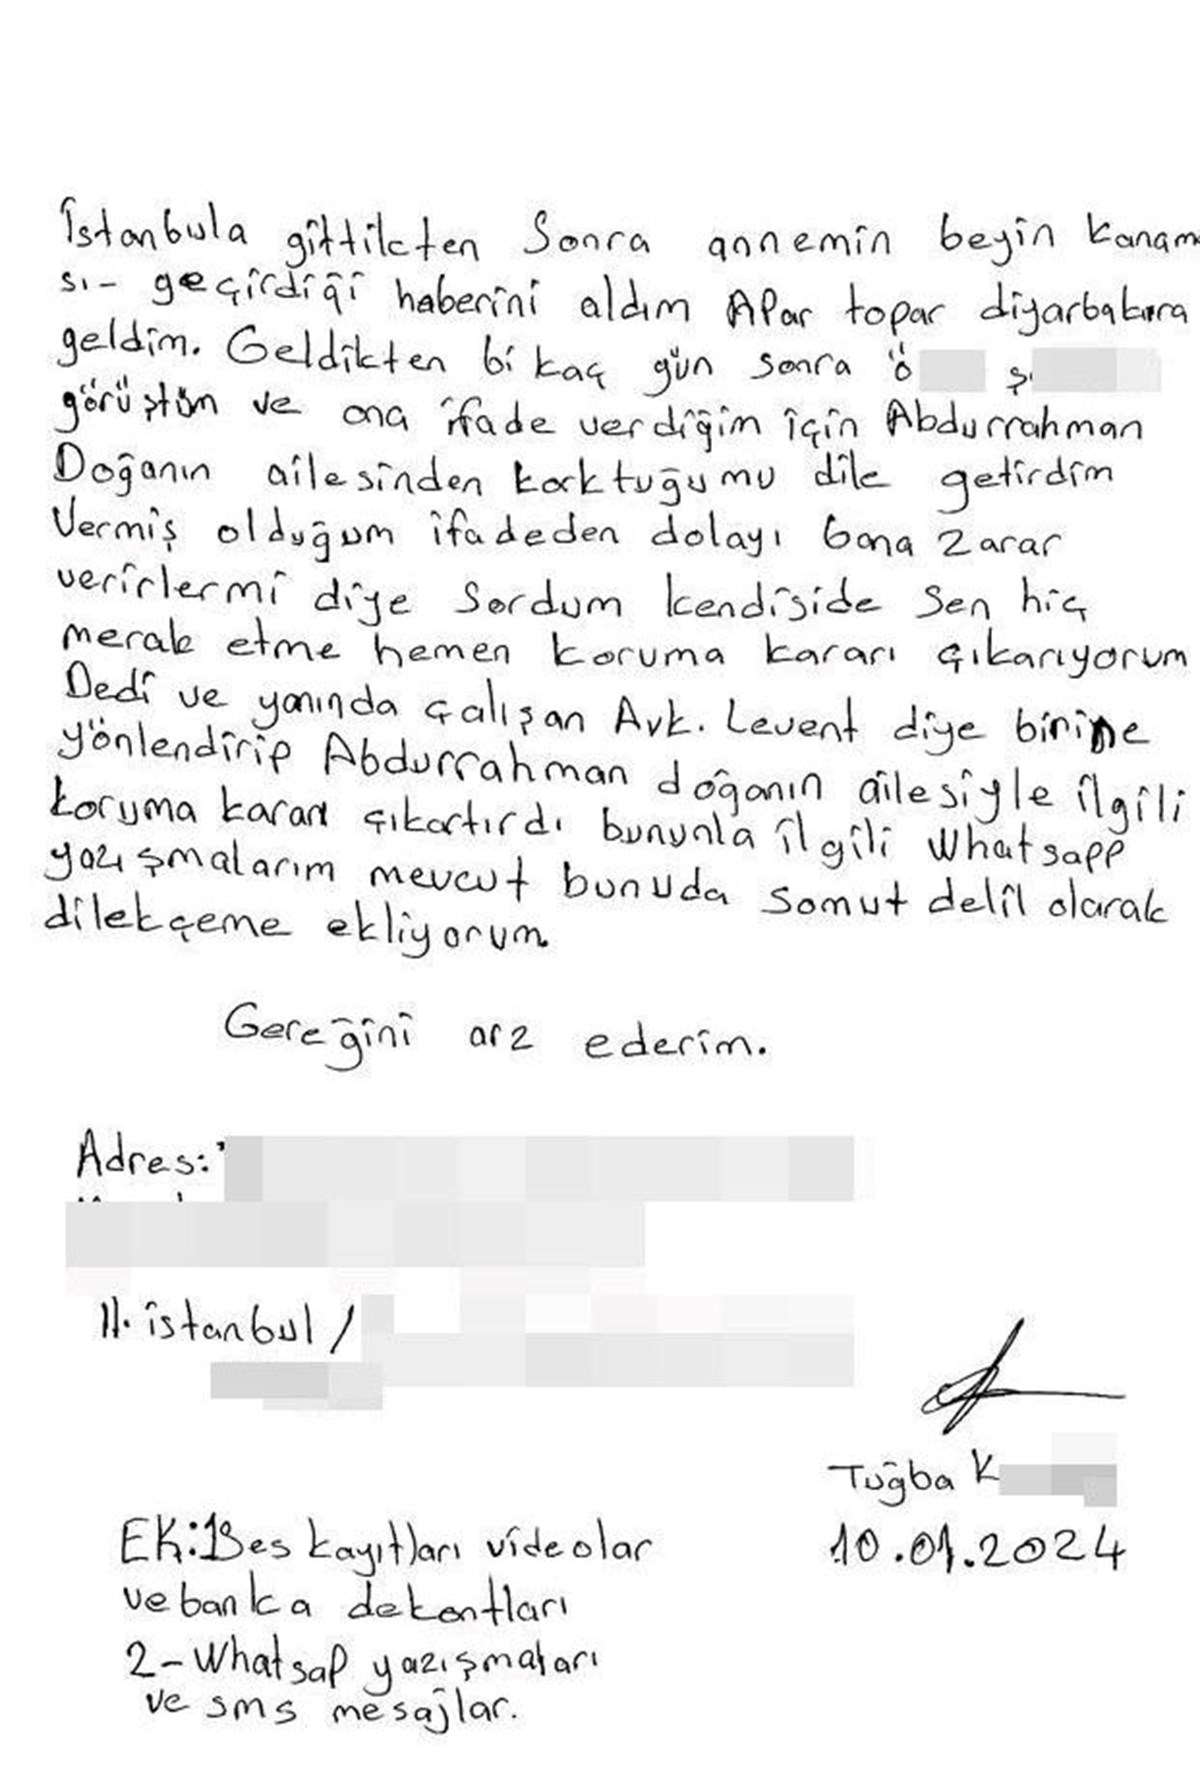 İstanbula gittikten Sonra annemin beyin kanama
sı- geçirdiği haberini aldım Apar topar diyarbakıra
geldim. Geldikten bi kaç gün sonra Ö Ş
görüştüm ve ona ifade verdiğim için Abdurrahman
Doğanın ailesinden korktuğumu dile getirdim
Vermiş olduğum ifadeden dolayı bana zarar
verirlermi diye Sordum kendiside Sen hiç
merak etme hemen koruma kararı çıkarıyorum
Dedi ve yanında çalışan Avk. Levent diye birine
yönlendirip Abdurrahman doğanın ailesiyle ilgili
koruma kararı çıkartırdı bununla ilgili Whatsapp
yazışmalarım mevcut bunuda somut delil olarak
dilekçeme ekliyorum.
Gereğini arz ederim.
Adres:
İl. istanbul /
Tuğba K
10.01.2024
EK:1Ses kayıtları videolar
ve banka dekontları
2-Whatsap yazışmaları
ve sms mesajlar.